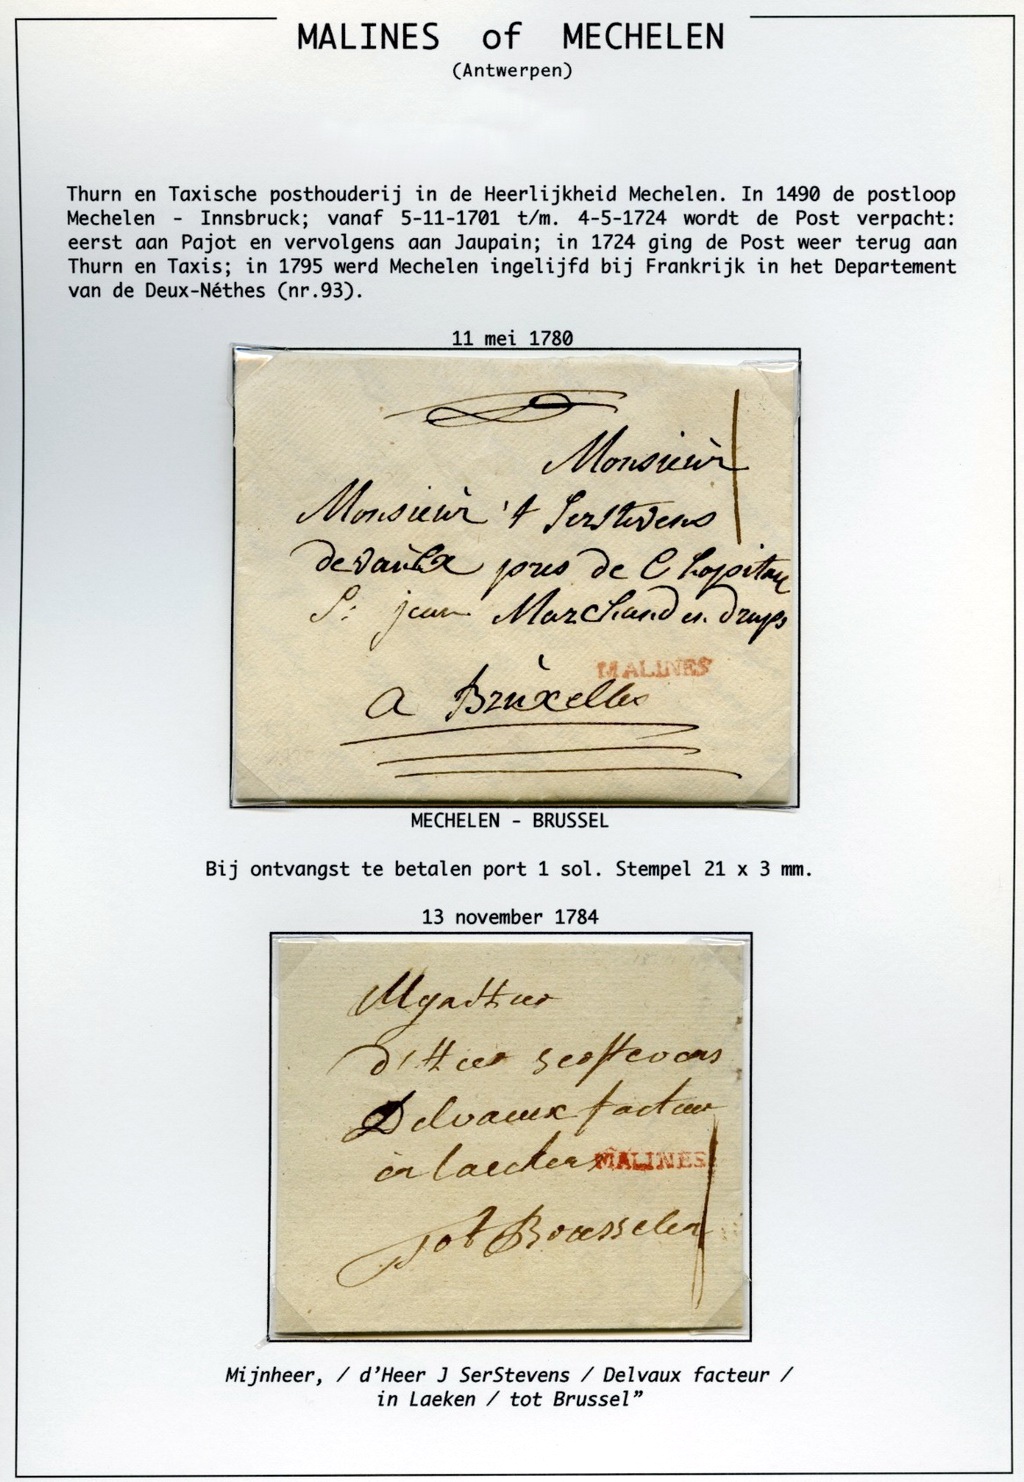 MALINES of MECHELEN
(Antwerpen)
Thurn en Taxische posthouderij in de Heerlijkheid Mechelen. In 1490 de postloop
Mechelen - Innsbruck; vanaf 5-11-1701 t/m. 4-5-1724 wordt de Post verpacht:
eerst aan Pajot en vervolgens aan Jaupain; in 1724 ging de Post weer terug aan
Thurn en Taxis; in 1795 werd Mechelen ingelijfd bij Frankrijk in het Departement
van de Deux-Néthes (nr.93).
11 mei 1780
Monsieur
Monsieur 't SerstEvens
devaulx pres de l hopitau
St: jean Marchand en draps
MALINES
a Bruxelles
MECHELEN - BRUSSEL
Bij ontvangst te betalen port 1 sol. Stempel 21 x 3 mm.
13 november 1784
Mynheer
d'Heer serstevens
Delvaux facteur
in laecken MALINES
tot Brusselen
Mijnheer, / d'Heer J SerStevens / Delvaux facteur /
in Laeken / tot Brussel”